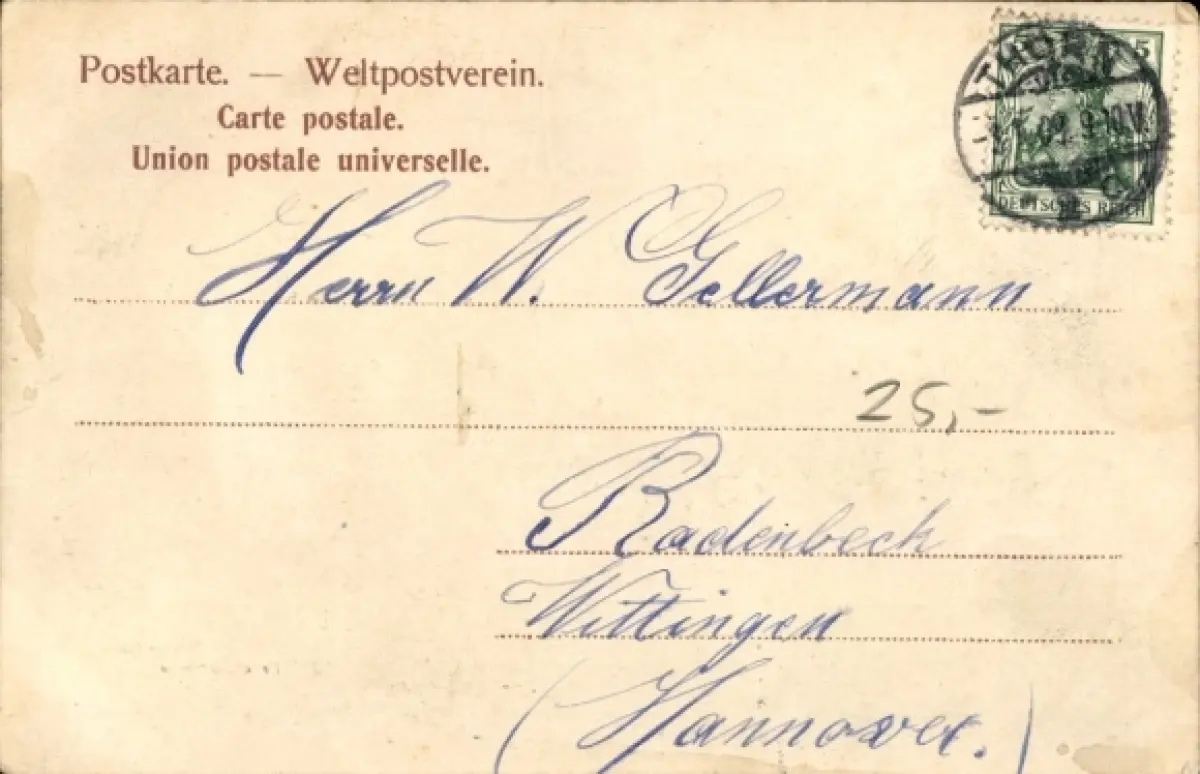 Postkarte. — Weltpostverein.
Carte postale.
Union postale universelle.
5
THORN
9-10V.
DEUTSCHES REICH
Herrn W. Gellermann
25,-
Radenbeck
Wittingen
(Hannover.)